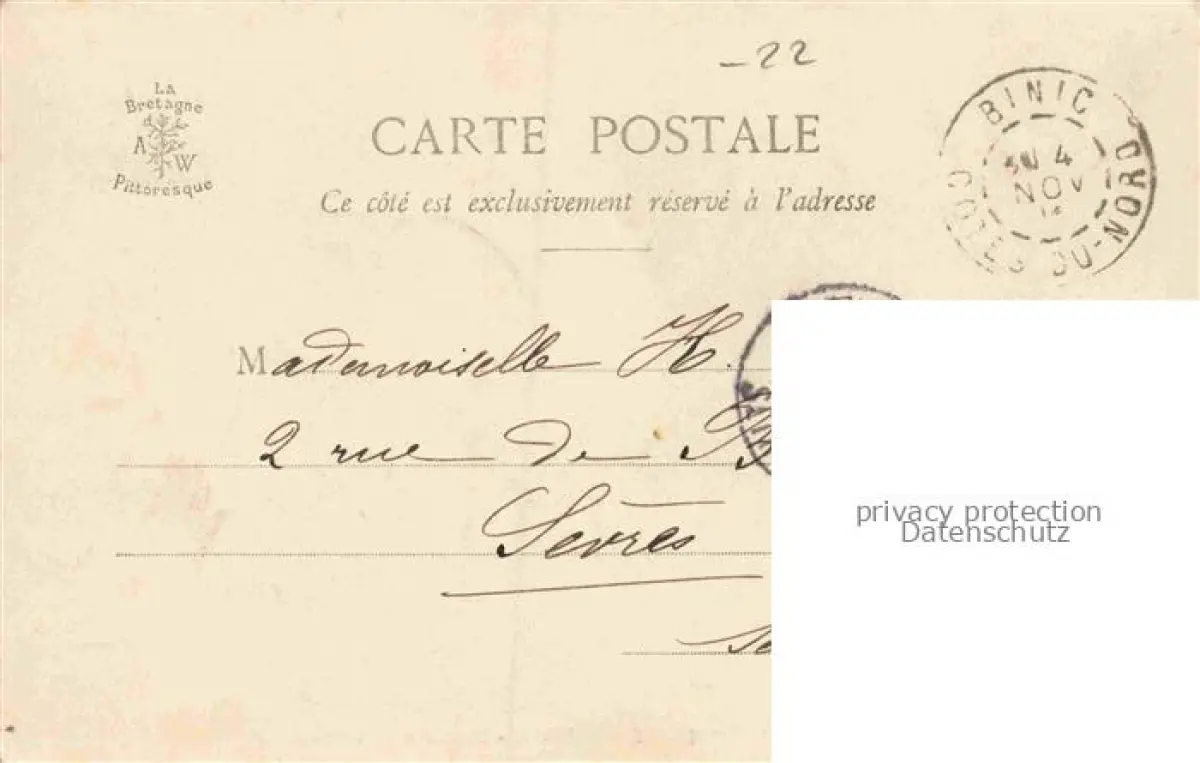 -22
La
Bretagne
A W
Pittoresque
CARTE POSTALE
Ce côté est exclusivement réservé à l'adresse
BINIC
4
NOV
COTES-DU-NORD
Mademoiselle H.
2 rue de
Sèvres
privacy protection
Datenschutz